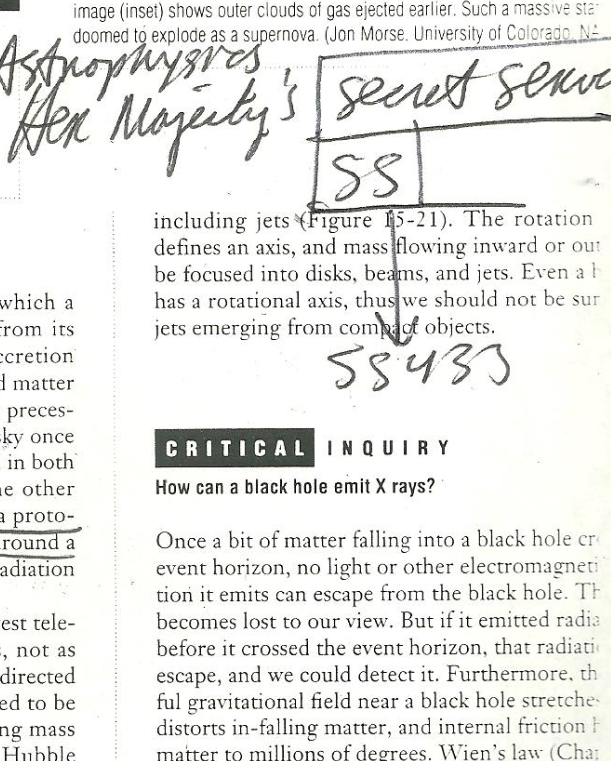 image (inset) shows outer clouds of gas ejected earlier. Such a massive sta
doomed to explode as a supernova. (Jon Morse. University of Colorado, NA
Astrophysics
Her Majesty's secret serv
SS
SS433
which a
from its
ccretion
d matter
preces-
sky once
in both
ne other
a proto-
round a
adiation
est tele-
s, not as
directed
ed to be
ng mass
Hubble
including jets (Figure 15-21). The rotation
defines an axis, and mass flowing inward or out
be focused into disks, beams, and jets. Even a
has a rotational axis, thus we should not be sur
jets emerging from compact objects.
CRITICAL INQUIRY
How can a black hole emit X rays?
Once a bit of matter falling into a black hole cr
event horizon, no light or other electromagneti
tion it emits can escape from the black hole. Th
becomes lost to our view. But if it emitted radia
before it crossed the event horizon, that radiati
escape, and we could detect it. Furthermore, th
ful gravitational field near a black hole stretche
distorts in-falling matter, and internal friction
matter to millions of degrees. Wien's law (Cha